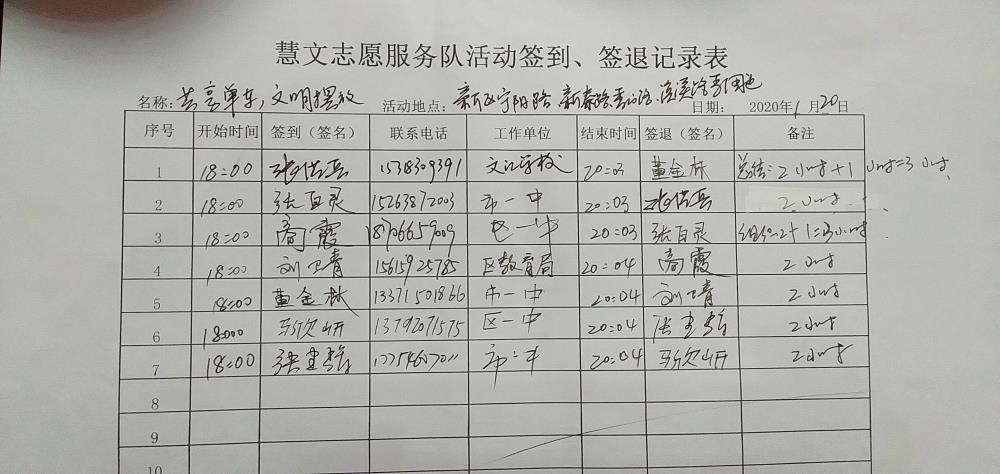 慧文志愿服务队活动签到、签退记录表
名称:共享单车,文明摆放 活动地点:新区宁阳路 日期: 2020年1月20日
序号 开始时间 签到(签名) 联系电话 工作单位 结束时间 签退(签名) 备注
1 18:00 1538309391 学校 20:03 董金林 总结:2小时+1小时=3小时
2 18:00 张百灵 15263872003 市一中 20:03 2小时
3 18:00 高霞 18706659009 区一中 20:03 张百灵 2+1=3小时
4 18:00 刘卫青 15615925785 区教育局 20:04 高霞 2小时
5 18:00 董金林 13371501866 市一中 20:04 刘卫青 2小时
6 18:000 13792071575 区一中 20:04 2小时
7 18:00 20:04 2小时
8
9
10